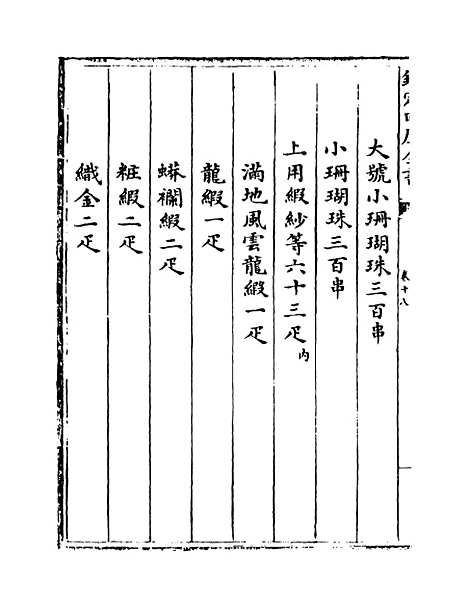 欽定四庫全書
卷十八
大號小珊瑚珠三百串
小珊瑚珠三百串
上用緞紗等六十三疋內
滿地風雲龍緞一疋
龍緞一疋
蟒襴緞二疋
粧緞二疋
織金二疋